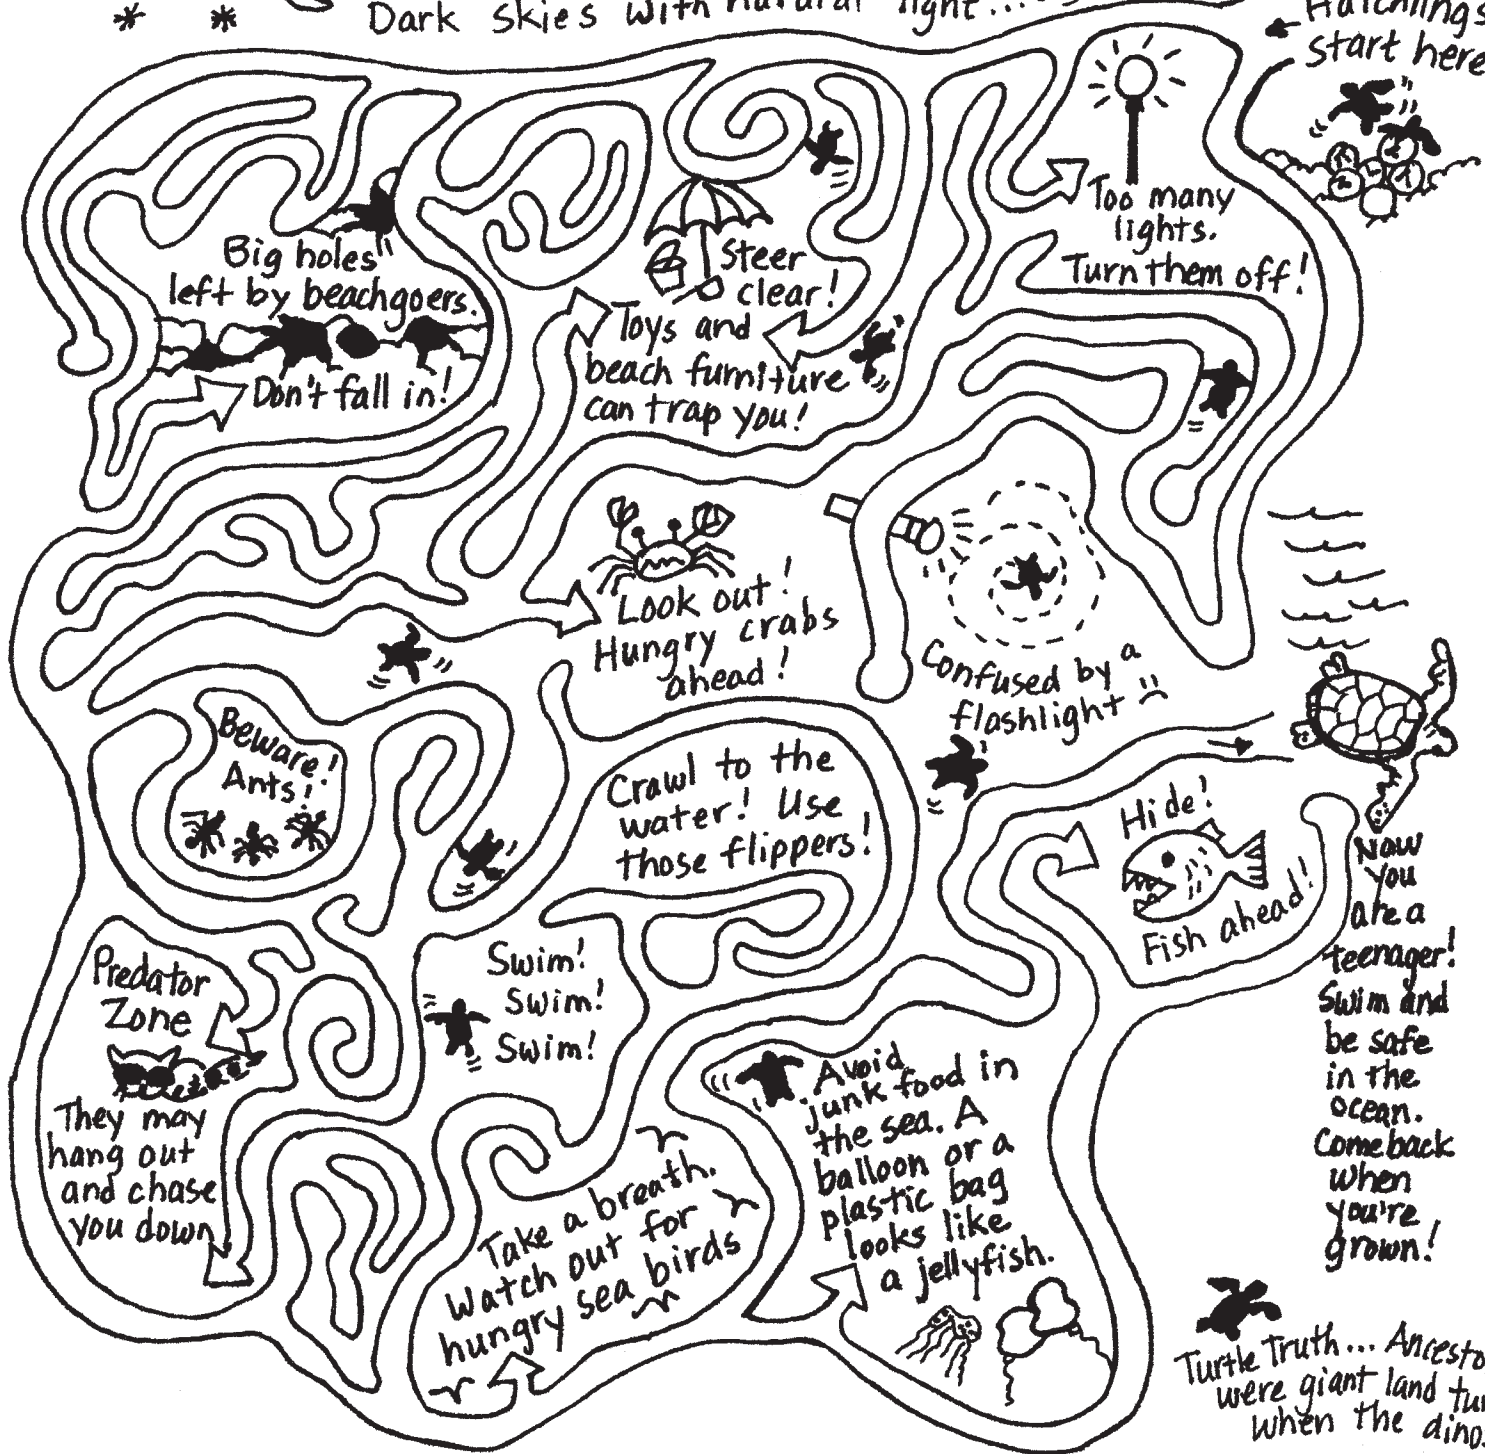 Dark skies with natural light...
Hatchlings
start here
Too many
lights.
Turn them off!
Big holes
left by beachgoers.
Don't fall in!
Steer
clear!
Toys and
beach furniture
can trap you!
Look out!
Hungry crabs
ahead!
Confused by a
flashlight
Beware!
Ants!
Crawl to the
water! Use
those flippers!
Hide!
Fish ahead!
Now
you
are a
teenager!
Swim and
be safe
in the
ocean.
Come back
when
you're
grown!
Predator
Zone
They may
hang out
and chase
you down
Swim!
Swim!
Swim!
Avoid
junk food in
the sea. A
balloon or a
plastic bag
looks like
a jellyfish.
Take a breath.
Watch out for
hungry sea birds
Turtle Truth... Ancesto
were giant land tu
when the dino